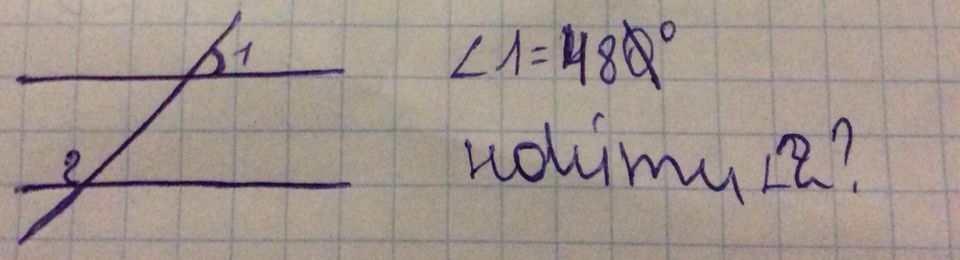 1
∠1=48°
2
найти ∠2?